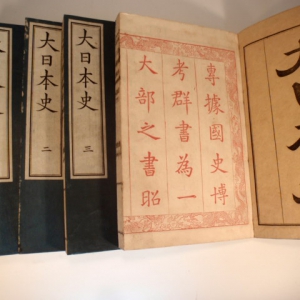 大日本史
二
大日本史
三
專據國史博
考群書為一
大部之書昭
大日本史